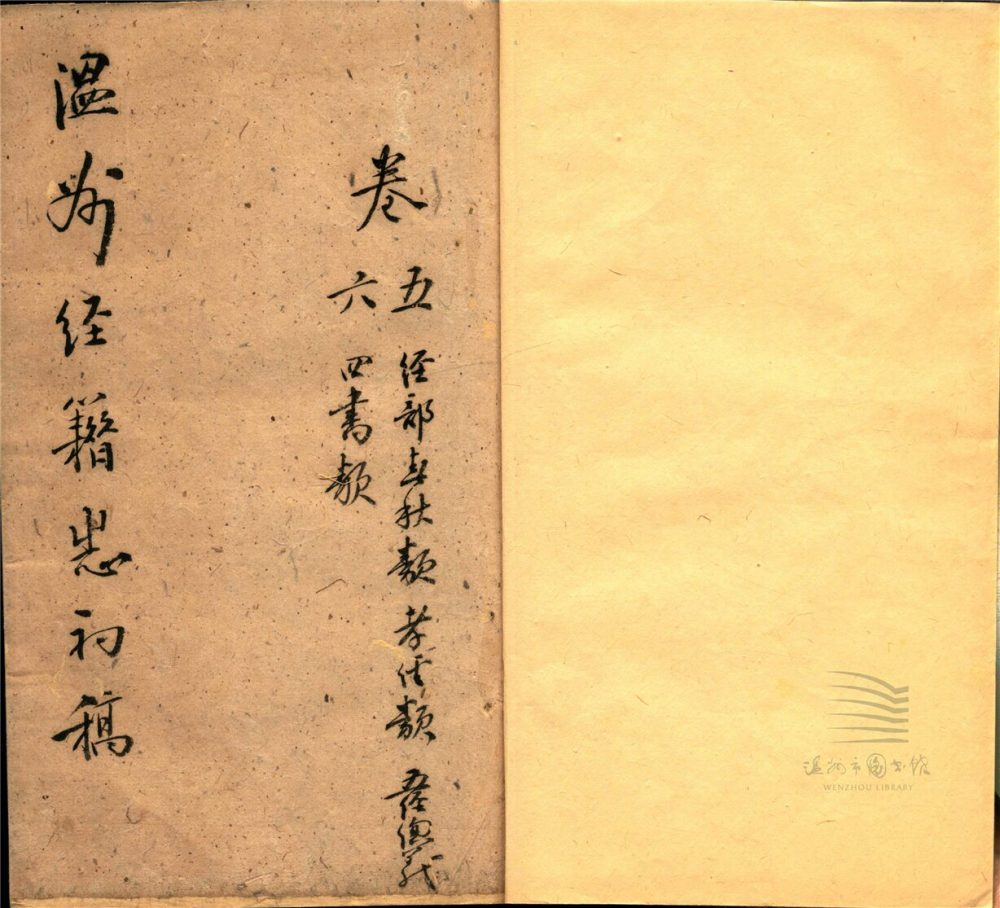 卷
五 經部春秋類 孝經類 五經總義
六 四書類
溫州经籍志初稿
温州市图书馆
WENZHOU LIBRARY